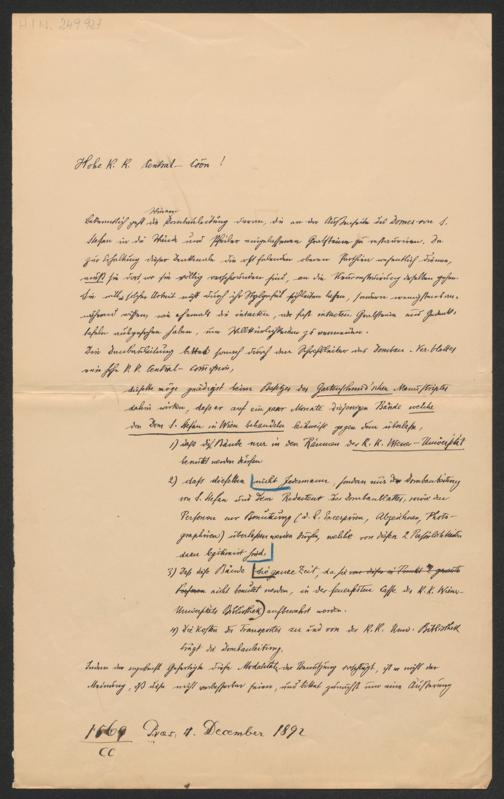 HIN. 249927
Hohe K. K. Central-Coön!
Wien
Bekanntlich geht die Dombauleitung daran, die an der Außenseite des Domes von S.
Stefan in die Wände und Pfeiler eingelassenen Grabsteine zu restauriren. Da
zur Erhaltung dieser Denkmale die oft fehlenden oberen Theile wesentlich dienen,
muß sie dort, wo sie völlig verschwunden sind, an die Neuconstruirung derselben gehen.
Sie will solche Arbeit nicht durch ihr Stylgefühl leiten lassen, sondern wenigstens an-
nähernd wissen, wie ehemals die intacten, oder fast intacten Grabsteine und Gedenk-
tafeln ausgesehen haben, um Willkürlichkeiten zu vermeiden.
Die Dombauleitung bittet sonach durch den Schriftleiter des Dombau-Vereinsblattes
eine hohe K. K. Central-Comission,
dieselbe möge gnädigst beim Besitzer des Gartenschmid'schen Manuscriptes
dahin wirken, daß er auf ein paar Monate diejenigen Bände welche
den Dom S. Stefan in Wien behandeln leihweise gegen dem überlasse,
1) daß diese Bände nur in den Räumen der K. K. Wiener-Universität
benützt werden dürfen
2) daß dieselben nicht Jedermann, sondern nur der Dombauleitung
von S. Stefan und dem Redacteur des Dombaublattes, sowie den
Personen zur Benützung (d. h. Excerpiren, Abzeichnen, Photo-
graphiren) überlassen werden dürfen, welche von diesen 2 Persönlichkeiten
dazu legitimirt sind.
3) Daß diese Bände die ganze Zeit, da sie
nicht benützt werden, in der feuerfesten Casse der K. K. Wiener-
Universitäts Bibliothek aufbewahrt werden.
4) Die Kosten des Transportes zu und von der K. K. Univ. Bibliothek
trägt die Dombauleitung.
Indem der ergebenst Gefertigte diese Modalität der Benützung vorschlägt, ist er nicht der
Meinung, daß diese nicht verbesserbar seien, und bittet zunächst um eine Äußerung
1569 Präs. 4. December 1892
CC